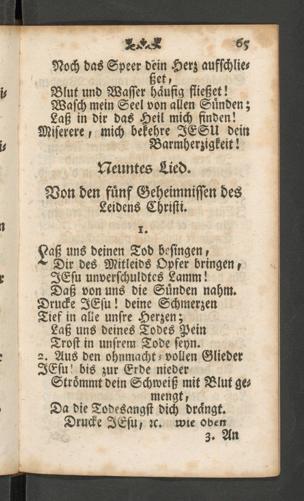 65
Noch das Speer dein Herz aufschlie-
ßet,
Blut und Wasser häufig fließet!
Wasch mein Seel von allen Sünden;
Laß in dir das Heil mich finden!
Miserere, mich bekehre JESU dein
Barmherzigkeit!
Neuntes Lied.
Von den fünf Geheimnissen des
Leidens Christi.
1.
Laß uns deinen Tod besingen,
Dir des Mitleids Opfer bringen,
JEsu unverschuldtes Lamm!
Daß von uns die Sünden nahm.
Drucke JEsu! deine Schmerzen
Tief in alle unsre Herzen;
Laß uns deines Todes Pein
Trost in unsrem Tode seyn.
2. Aus den ohnmacht-vollen Glieder
JEsu! bis zur Erde nieder
Strömmt dein Schweiß mit Blut ge-
mengt,
Da die Todesangst dich drängt.
Drucke JEsu, ꝛc. wie oben
3. An